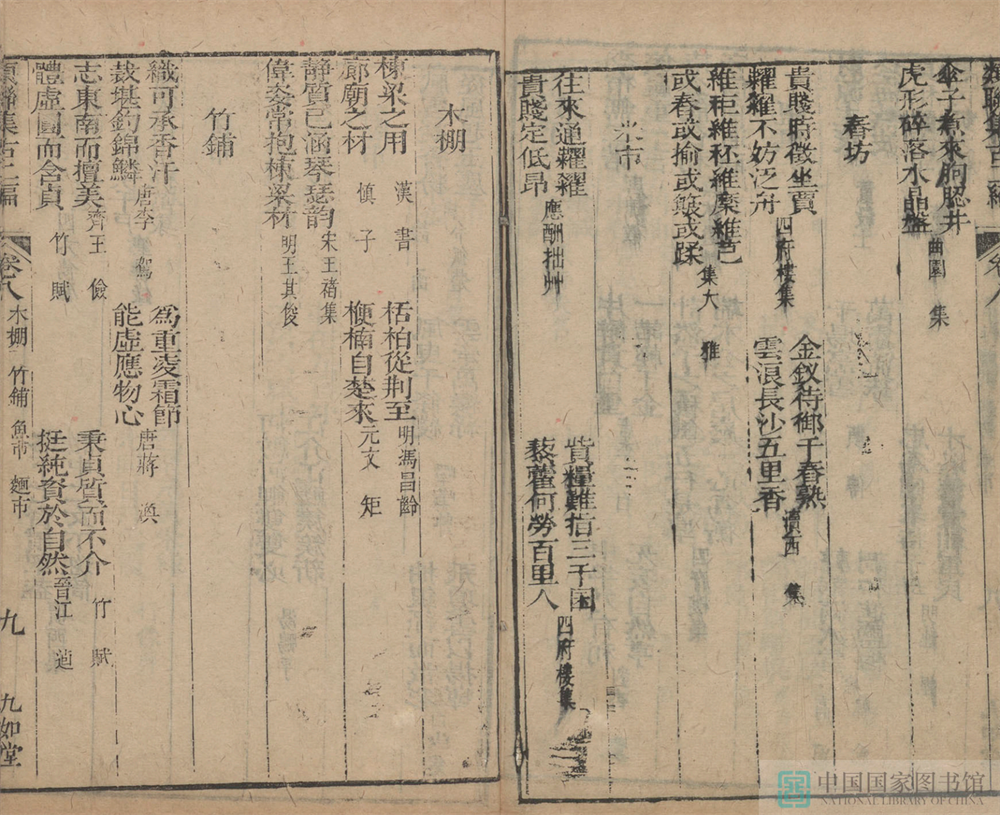 傘子煮來朐䏰井
虎形碎落水晶盤
曲園集
舂坊
貴賤時徵坐賈
糶糴不妨泛舟
四府樓集
金釵待御千舂熟
雲浪長沙五里香
瀆西集
維秬維秠維穈維芑
或舂或揄或簸或蹂
集大雅
米市
往來通糶糴
貴賤定低昂
應酬拙艸
貲糧難指三千囷
藜藿何勞百里人
四府樓集
木棚
棟梁之用
漢書
廊廟之材
慎子
栝柏從荆至
明馮昌齡
楩楠自楚來
元文矩
靜質已涵琴瑟韵
宋王禕集
偉姿常抱棟梁材
明王其俊
竹鋪
織可承香汗
唐李賀
裁堪釣錦鱗
為重凌霜節
能虛應物心
唐蔣渙
志東南而擅美
齊王儉
體虛圓而含貞
竹賦
秉貞質而不介
竹賦
挺純資於自然
晉江逌
卷八
木棚 竹鋪 魚市 麵市
九
九如堂
中国国家图书馆
NATIONAL LIBRARY OF CHINA